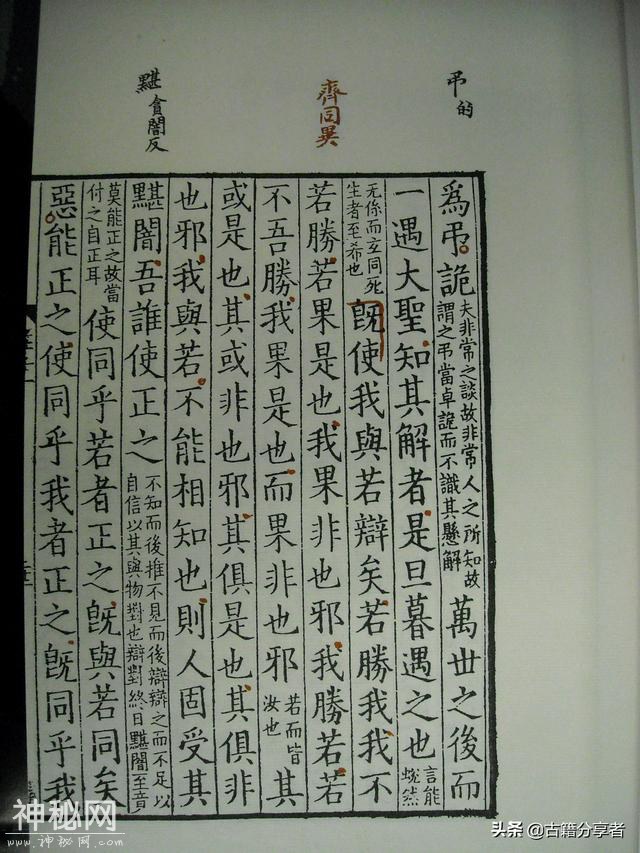 弔的
齊同異
黮貪闇反
為弔詭夫非常之談故非常人之所知故謂之弔當卓詭而不識其懸解萬世之後而
一遇大聖知其解者是旦暮遇之也言能蛻然
无係而玄同死生者至希也既使我與若辯矣若勝我我不
若勝若果是也我果非也邪我勝若若
不吾勝我果是也而果非也邪若而皆汝也其
或是也其或非也邪其俱是也其俱非
也邪我與若不能相知也則人固受其
黮闇吾誰使正之不知而後推不見而後辯辯之而不足以自信以其與物對也辯對終日黮闇至竟
莫能正之故當付之自正耳使同乎若者正之既與若同矣
惡能正之使同乎我者正之既同乎我
神秘网
www.神秘网.com
头条 @古籍分享者